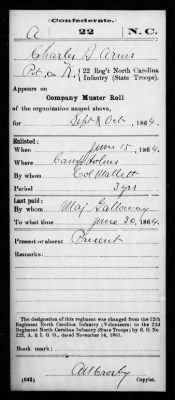 Confederate.
A 22 N.C.
Charles B Arms
Pvt, Co. K, 22 Reg't North Carolina
Infantry (State Troops).
Appears on
Company Muster Roll
of the organization named above,
for Sept & Oct, 1864.
Enlisted:
When June 15, 1864.
Where Camp Holmes
By whom Col Mallett
Period 3 yrs
Last paid:
By whom Maj Galloway
To what time June 30, 1864.
Present or absent Present
Remarks:
The designation of this regiment was changed from the 12th
Regiment North Carolina Infantry (Volunteers) to the 22d
Regiment North Carolina Infantry (State Troops) by S. O. No
222, A. & I. G. O., dated November 14, 1861.
Book mark:
(642) A W Crosby
Copyist.